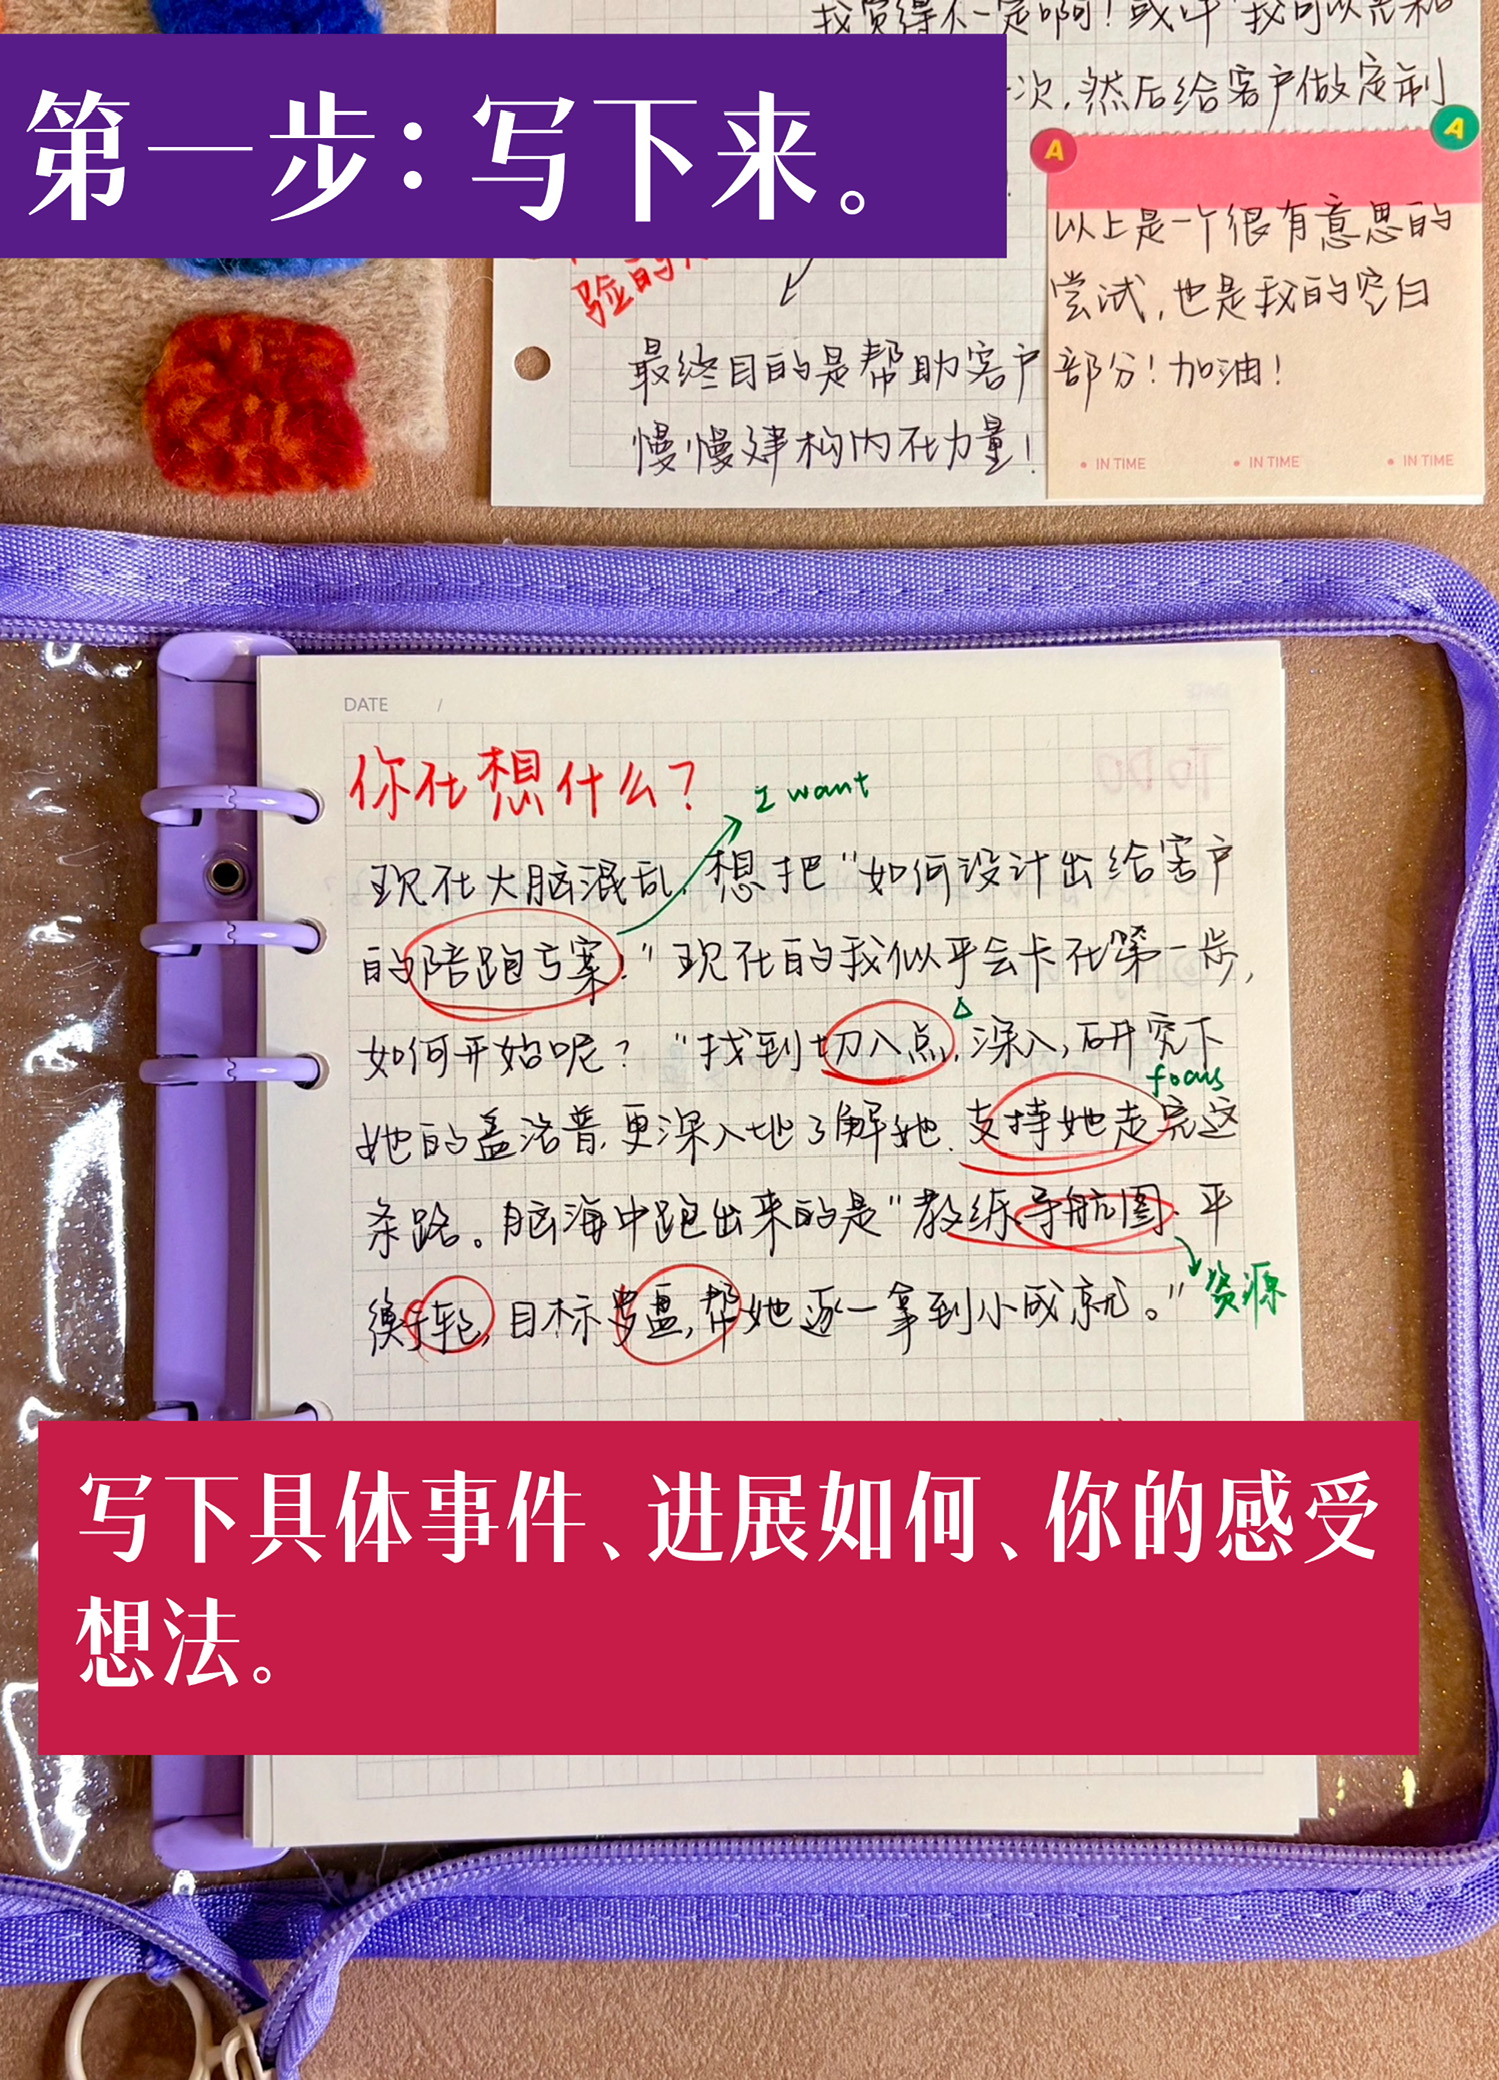 我觉得不一定啊！或叫"我可以先和
第一步：写下来。
次，然后给客户做定制
A
A
以上是一个很有意思的
尝试，也是我的空白
部分！加油！
IN TIME
IN TIME
IN TIME
验的
最终目的是帮助客户
慢慢建构内在力量！
DATE /
你在想什么？
I want
现在大脑混乱，想把"如何设计出给客户
的陪跑方案。"现在的我似乎会卡在第一步，
如何开始呢？"找到切入点，深入，研究下
focus
她的盖洛普，更深入地了解她，支持她走完这
条路。脑海中跑出来的是"教练导航图、平
衡轮，目标罗盘，帮她逐一拿到小成就。"
资源
TO DO
写下具体事件、进展如何、你的感受
想法。